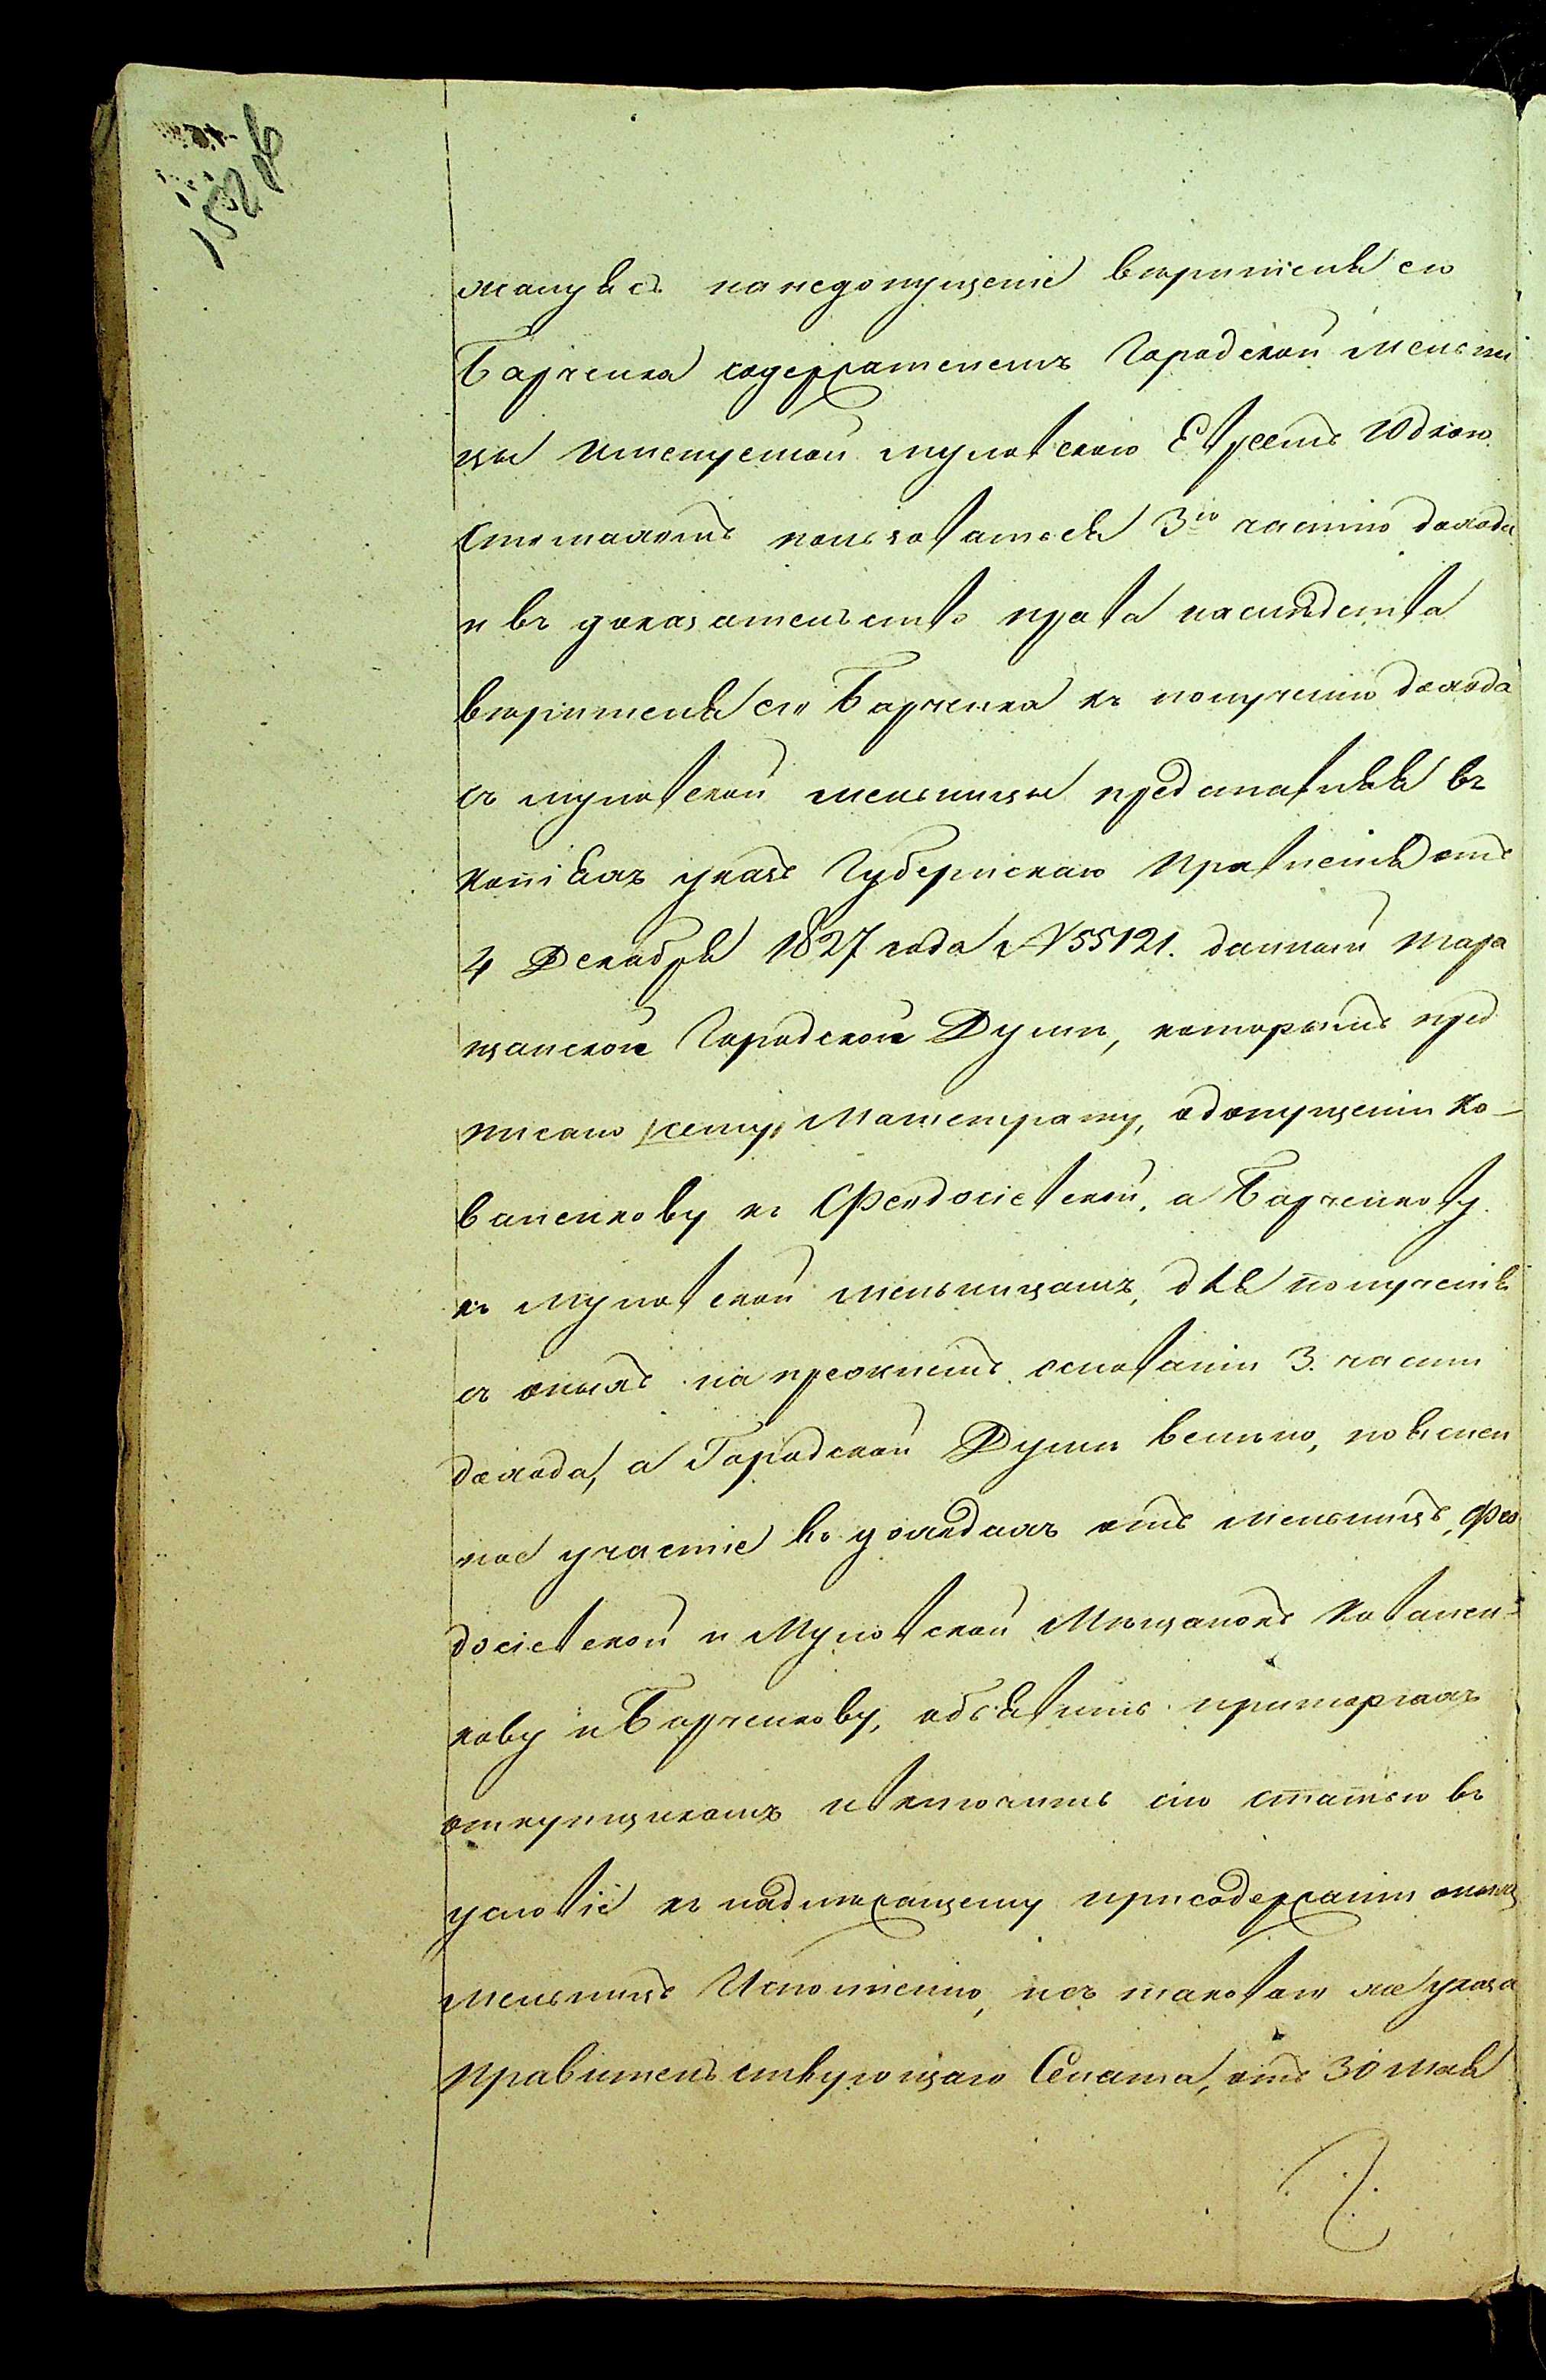 152 об
жалуясь на недопущение вѣрителя его
Барченка содержателемъ Городской Мельни
цы именуемой муловскаго Евреемъ Юдкою
пользоватся 3ю частію дохода
и въ доказательство права наслѣдства
вѣрителя его Барченка къ полученію дохода
съ муловской мельницы представляя въ
копіяхъ указъ Губернскаго Правленія отъ
4 Декабря 1827 года № 55121. данный Тара
щанской Городской Думѣ, которымъ пред
писано сему Магистрату, одопущеніи Ко-
валенкову къ Феодосіевской, а Барченкову
къ Муловской мельницамъ, для полученія
съ оныхъ на прежнемъ основаніи 3. части
дохода, а Городской Думѣ велѣно, поясмен
ное участіе въ доходахъ отъ мельницъ, Фео
досіевской и Муловской Мѣщанокъ Ковален-
кову и Барченкову, объявить приторгахъ
откупщикамъ и включить сію статью въ
условіе къ надлежащему присодержаніи оныхъ
мельницъ Исполненію, исъ таковаго же указа
Правительствующаго Сената, отъ 30 мая